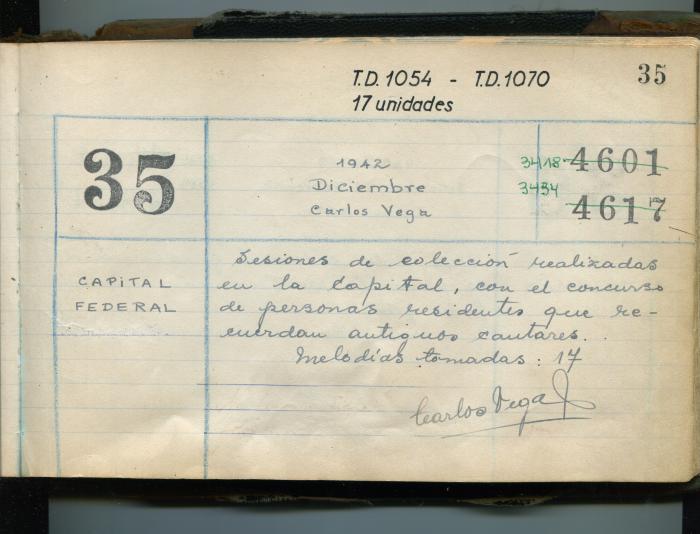 T.D. 1054 - T.D. 1070
35
17 unidades
35
1942
Diciembre
Carlos Vega
3418 4601
3434 4617
CAPITAL
FEDERAL
Sesiones de colección realizadas
en la Capital, con el concurso
de personas residentes que re-
cuerdan antiguos cantares.
Melodías tomadas: 17
Carlos Vega